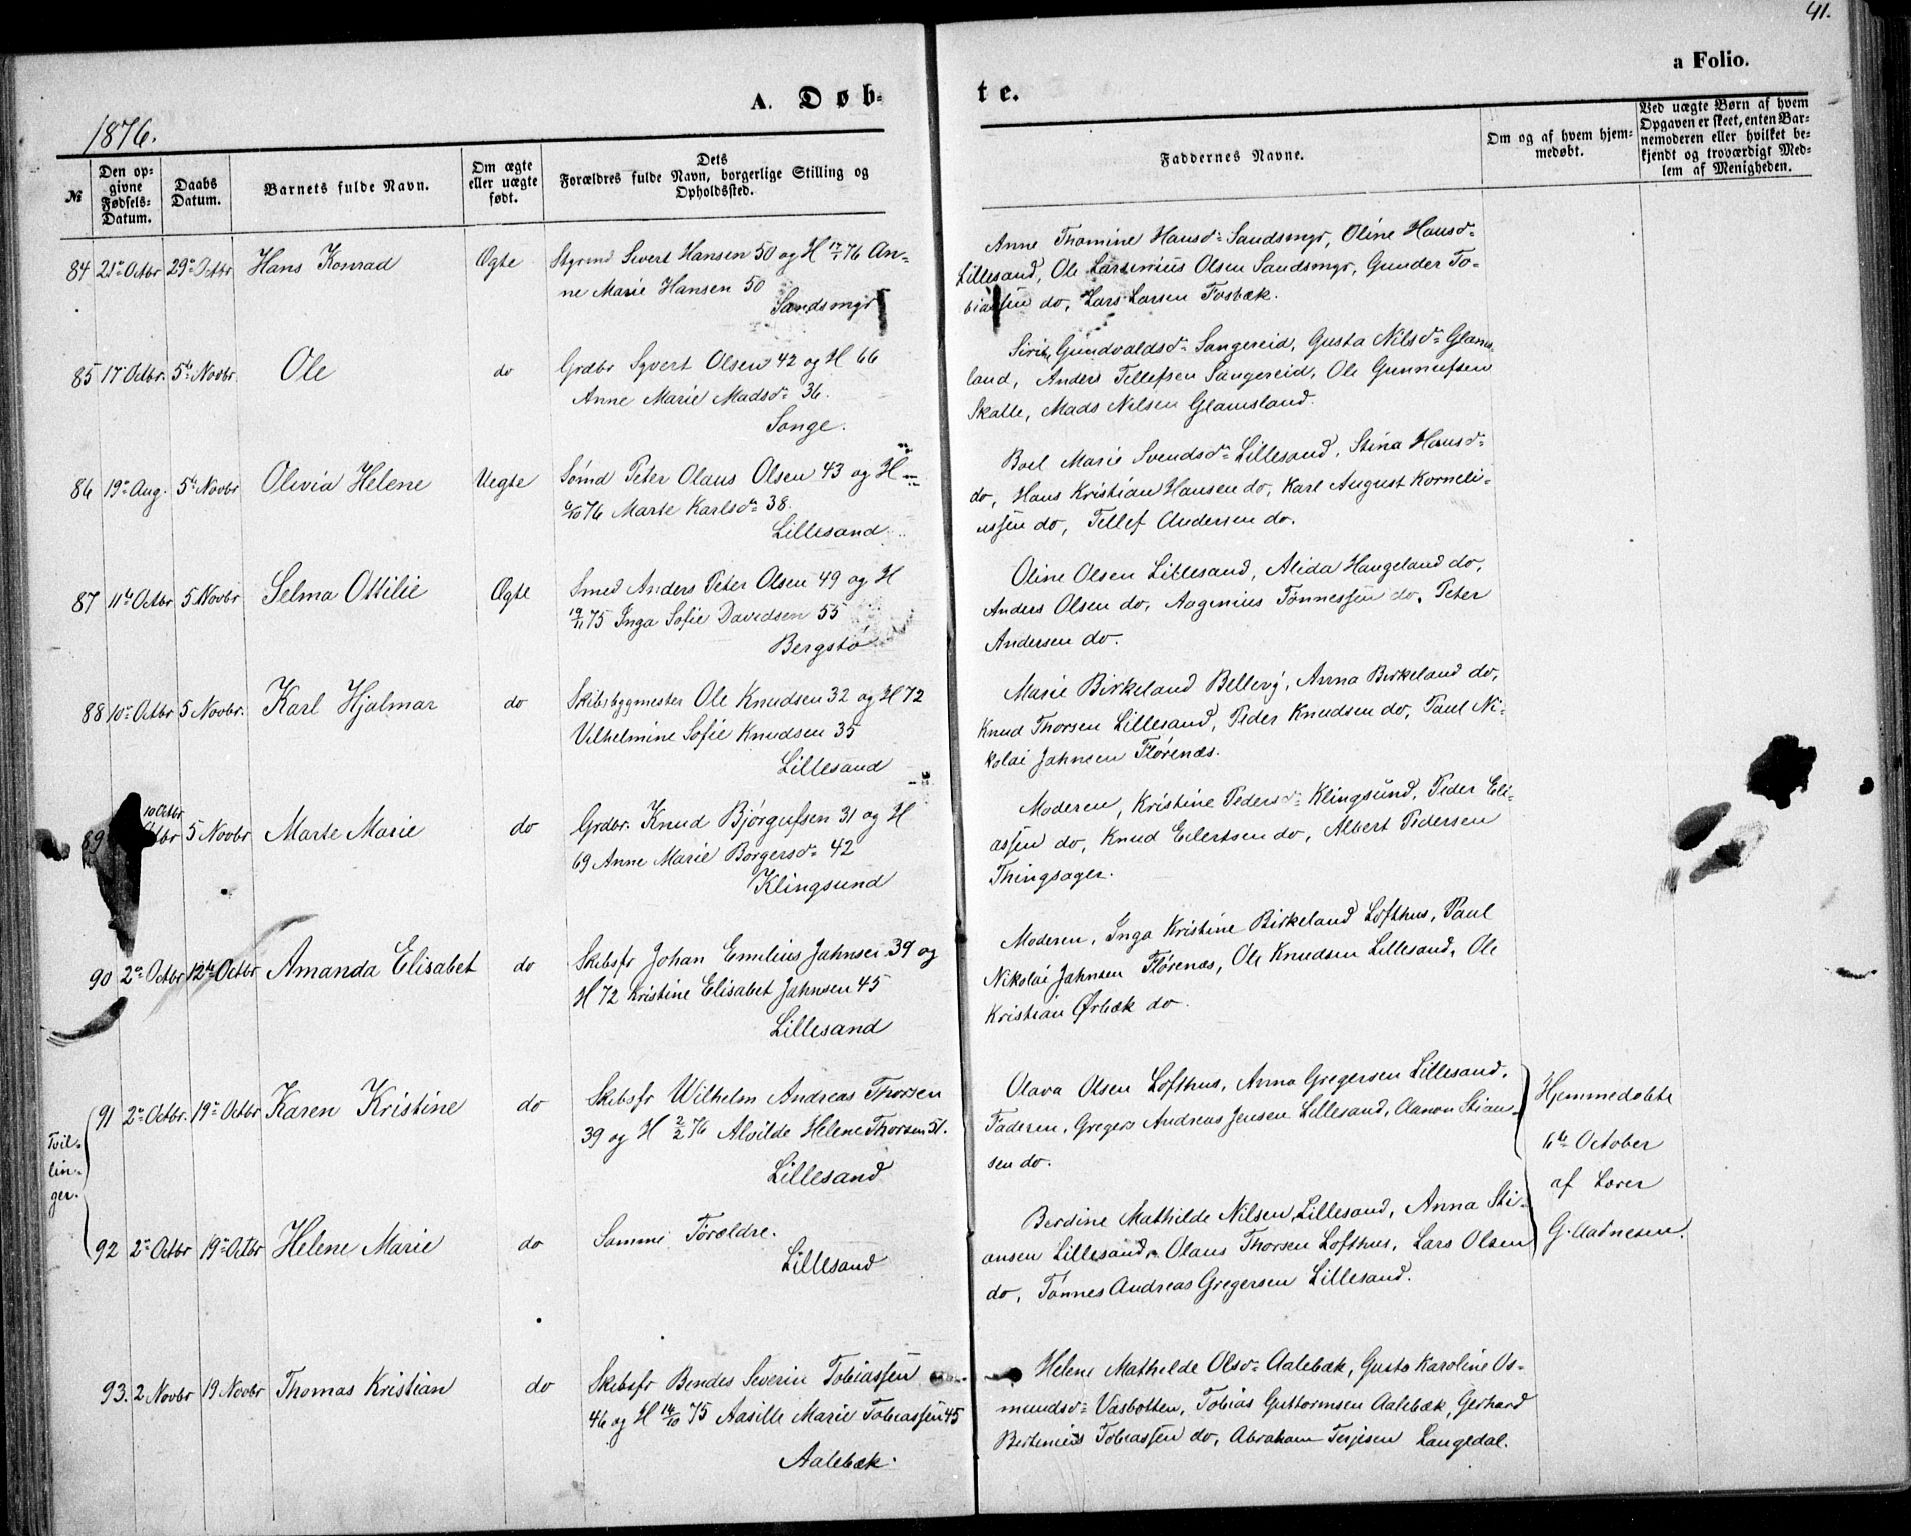 41.
a Folio.
A. Døb-
te.
1876.
№
Den op-
givne
Fødsels-
Datum.
Daabs
Datum.
Barnets fulde Navn.
Om ægte
eller uægte
født.
Dets
Forældres fulde Navn, borgerlige Stilling og
Opholdssted.
Faddernes Navne.
Om og af hvem hjem-
medøbt.
Ved uægte Børn af hvem
Opgaven er skeet, enten Bar-
nemoderen eller hvilket be-
kjendt og troværdigt Med-
lem af Menigheden.
84 21de Octbr 29de Octbr Hans Konrad Ægte Styrmd Sivert Hansen 50 og H 17/1 76 An-
ne Marie Hansen 50
Sandsmyr
Anne Thomine Hansd= Sandsmyr, Oline Hansd=
Lillesand, Ole Larsenius Olsen Sandsmyr, Gunder To-
biassen do, Lars Larsen Fosbæk.
85 17 Octbr. 5te Novbr. Ole do Grdbr Syvert Olsen 42 og H 66
Anne Marie Madsd= 36.
Songe.
Siri Gundvaldsd= Sangereid, Gusta Nilsd= Glams-
land, Anders Tellefsen Sangereid, Ole Gunnufsen
Skalle, Mads Nilsen Glamsland.
86 19de Aug. 5te Novbr Olivia Helene Uegte Sømd Peter Olaus Olsen 43 og H
6/10 76 Marte Karlsd= 38.
Lillesand
Boel Marie Svendsd= Lillesand, Stina Hansd=
do, Hans Kristian Hansen do, Karl August Korneli-
ussen do, Tellef Andersen do.
87 11te Octbr 5 Novbr Selma Ottilie Ægte Smed Anders Peter Olsen 49 og H
19/11 75 Inga Sofie Davidsen 55
Bergstø
Oline Olsen Lillesand, Alida Haugeland do,
Anders Olsen do, Aagenius Tønnessen do, Peter
Andersen do.
88 10de Octbr 5 Novbr. Karl Hjalmar do Skibsbygmester Ole Knudsen 32 og H 72
Vilhelmine Sofie Knudsen 35
Lillesand
Marie Birkeland Bellevy, Anna Birkeland do,
Knud Thorsen Lillesand, Peder Knudsen do, Paul Ni-
kolai Jahnsen Flørenæs.
89 10 Octbr 5 Novbr Marte Marie do Grdbr. Knud Bjørgufsen 31 og H
69 Anne Marie Børgersd= 42
Klingsund
Moderen, Kristine Pedersd= Klingsund, Peder Eli-
assen do, Knud Eilertsen do, Albert Pedersen
Thingsager.
90 2de Octbr 12te Octbr Amanda Elisabet do Skibsfr Johan Emilius Jahnsen 39 og
H 72 Kristine Elisabet Jahnsen 45
Lillesand
Moderen, Inga Kristine Birkeland Lofthus, Paul
Nikolai Jahnsen Flørenæs, Ole Knudsen Lillesand, Ole
Kristian Ørbæk do.
Tvil-
lin-
ger.
91 2de Octbr. 19de Octbr Karen Kristine do Skibsfr Wilhelm Andreas Thorsen
39 og H 2/2 76 Alvilde Helene Thorsen 51.
Lillesand
Olava Olsen Lofthus, Anna Gregersen Lillesand,
Faderen, Gregers Andreas Jensen Lillesand, Aanon Stian-
sen do.
Hjemmedøbte
6te October
af Lærer
G. Aadnesen.
92 2de Octbr 19de Octbr Helene Marie do Samme Forældre.
Lillesand
Berdine Mathilde Nilsen Lillesand, Anna Sti-
ansen Lillesand, Olaus Thorsen Lofthus, Lars Olsen
do, Tønnes Andreas Gregersen Lillesand.
93. 2 Novbr 19 Novbr Thomas Kristian do Skibsfr Bendes Severin Tobiassen
46 og H 14/10 75 Aasille Marie Tobiassen 45
Aalebæk.
Helene Mathilde Olsd= Aalebæk, Gusta Karoline Os-
mundsd= Vasbotten, Tobias Guttormsen Aalebæk, Gerhard
Bertinius Tobiassen do, Abraham Terjesen Langedal.